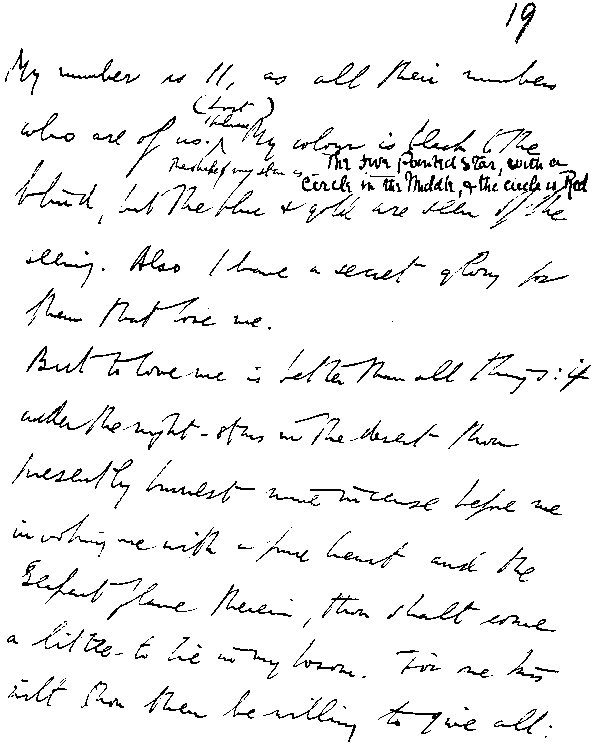 19
My number is 11, as all their numbers
(Lost
1 phrase)
who are of us. ^ My colour is black to the
The shape of my star is The five pointed Star, with a
Circle in the Middle, & the circle is Red
blind, but the blue & gold are seen of the
seeing. Also I have a secret glory for
them that love me.
But to love me is better than all things: if
under the night-stars in the desert thou
presently burnest mine incense before me
invoking me with a pure heart and the
Serpent flame therein, thou shalt come
a little to lie in my bosom. For one kiss
wilt thou then be willing to give all: